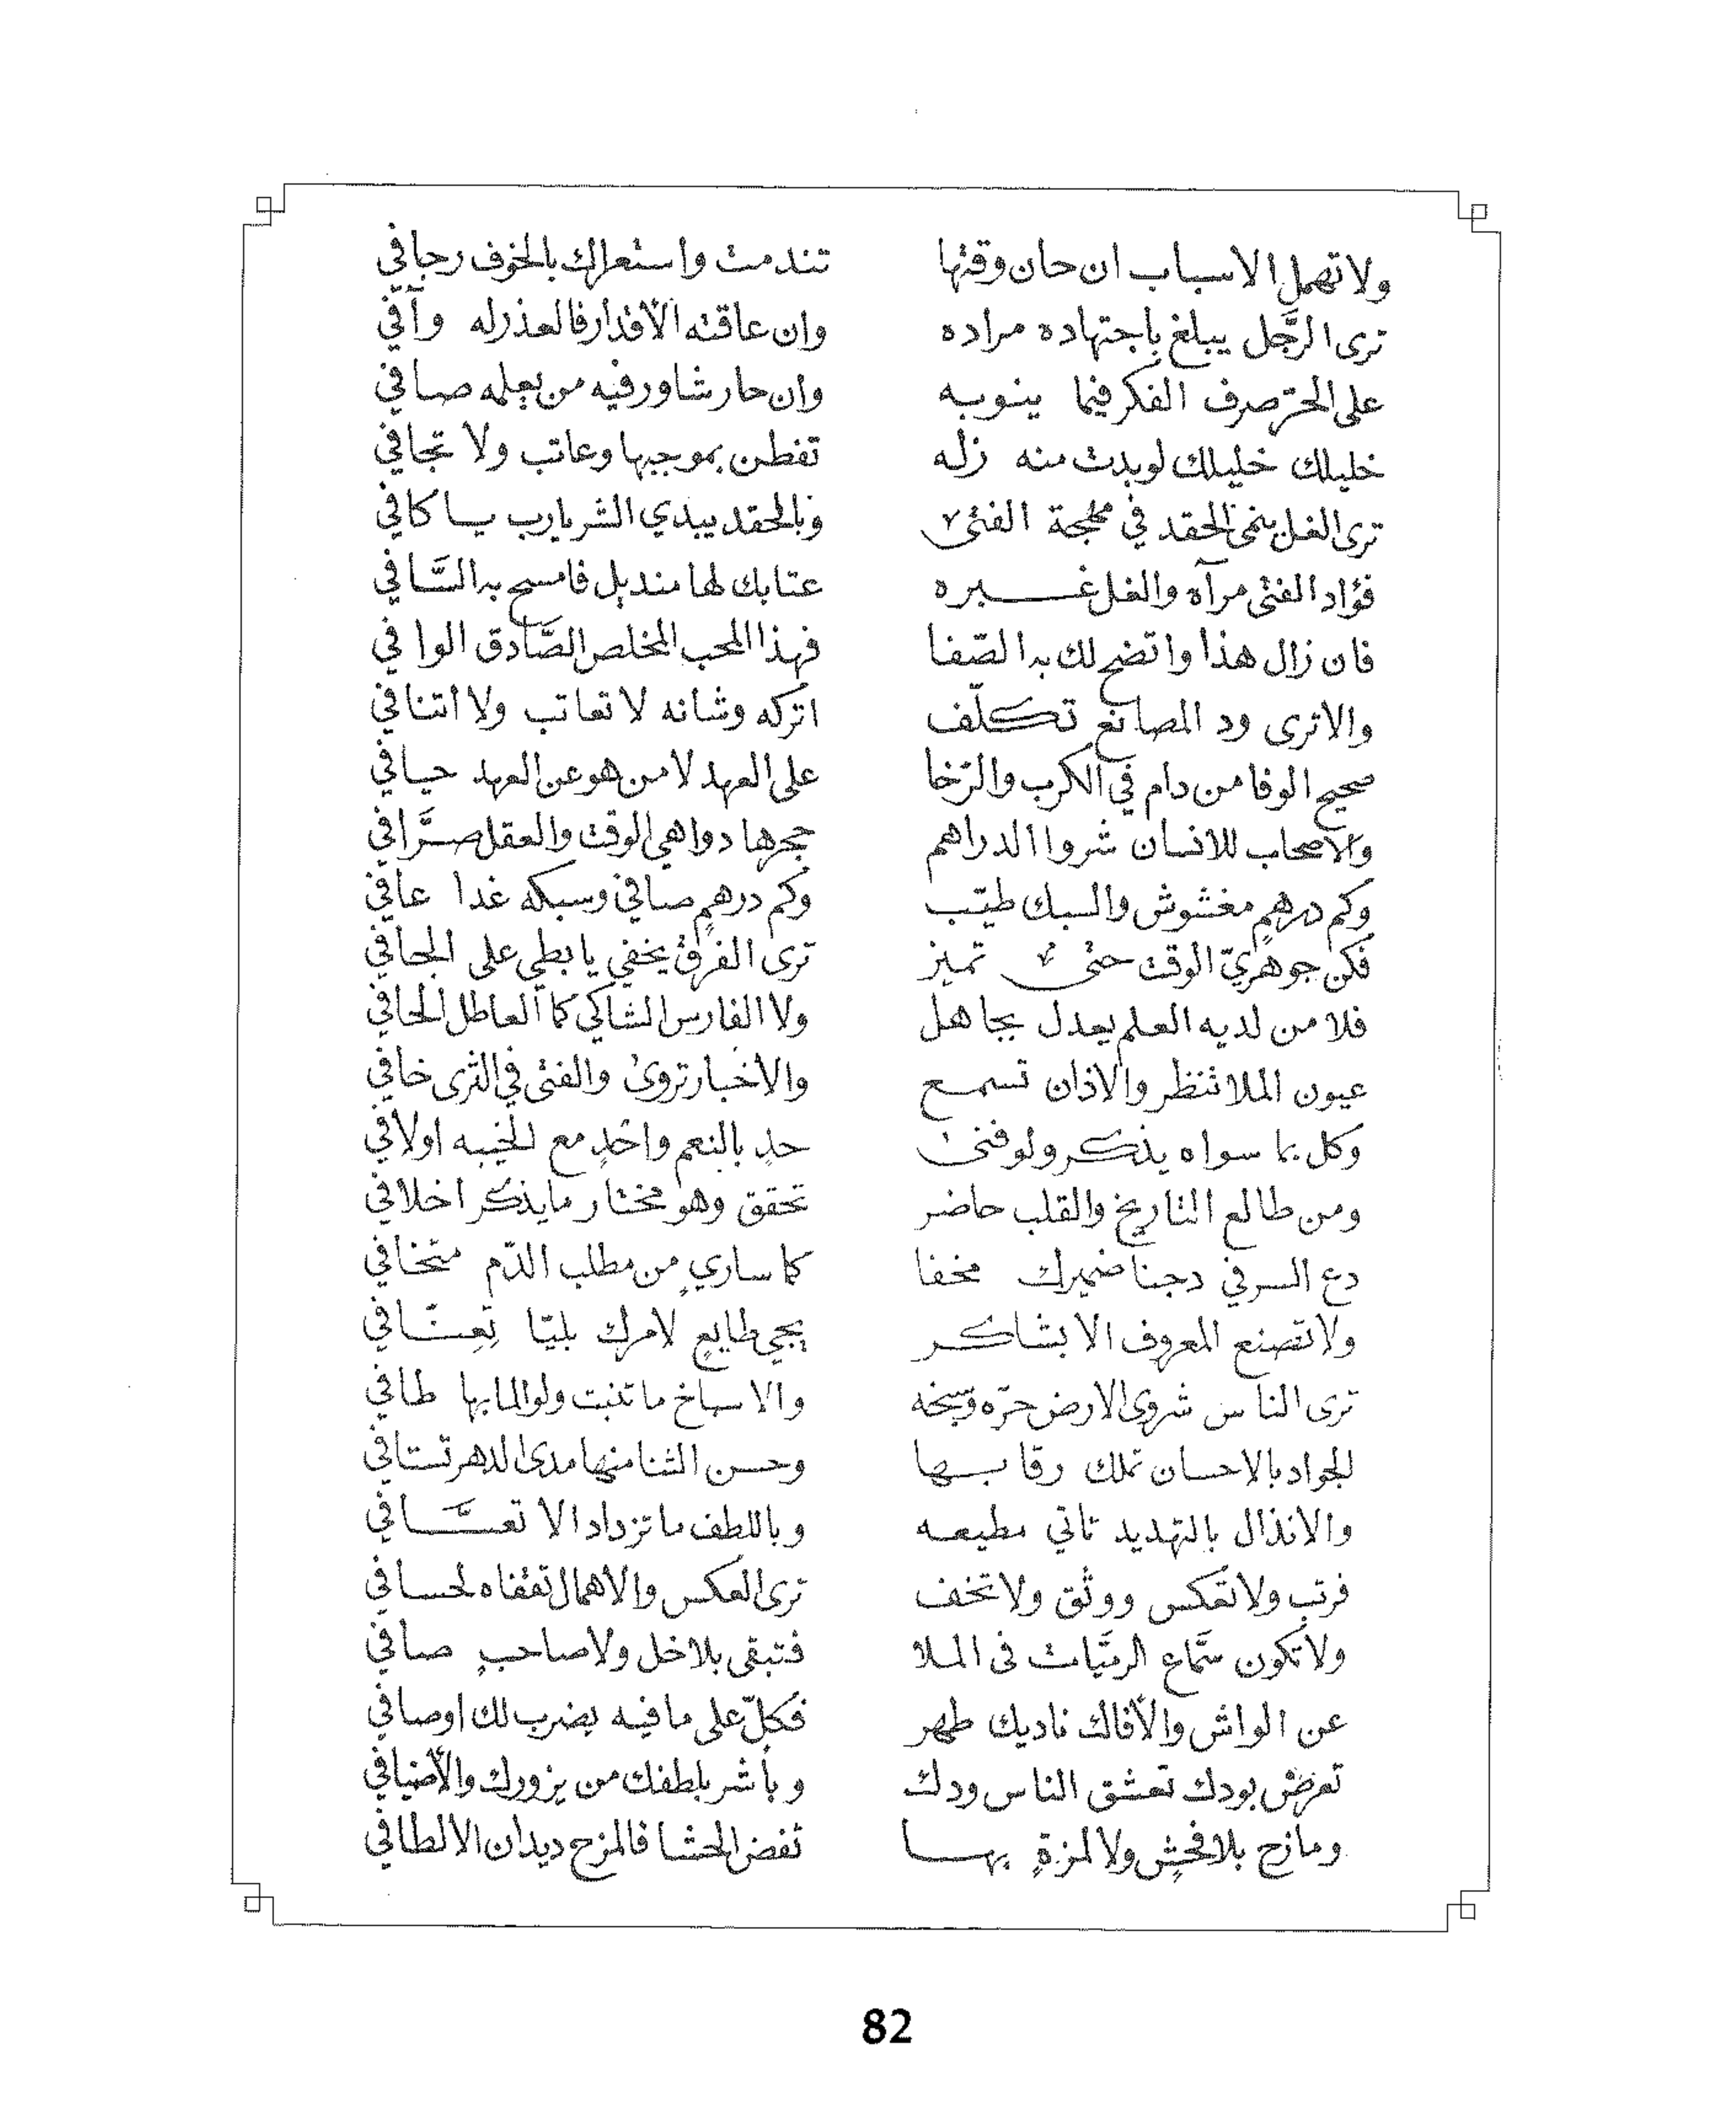 ولا تهمل الاسباب ان حان وقتها تندمت واستعراك بالخوف رجافي
ترى الرَّجل يبلغ باجتهاده مراده وان عاقته الأقدار فالعذر له وآفي
على الحرّ صرف الفكر فيما ينوبه وان حار شاور فيه من بعلمه صافي
خليلك خليلك لو بدت منه زله تفطن بموجبها وعاتب ولا تجافي
ترى الغل ينمي الحقد في مهجة الفتى وبالحقد يبدي الشر يا رب يا كافي
فؤاد الفتى مرآه والغل غبره عتابك لها منديل فامسح به السَّافي
فان زال هذا واتضح لك به الصّفا فهذا المحب المخلص الصَّادق الوافي
والا ترى ود المصانع تكلّف اتركه وشانه لا تعاتب ولا اتنافي
صحيح الوفا من دام في الكرب والرّخا على العهد لا من هو عن العهد حيافي
والاصحاب للانسان شروا الدراهم حجرها دواهي الوقت والعقل صرَّافي
وكم درهمٍ مغشوش والسبك طيّب وكم درهمٍ صافي وسبكه غدا عافي
فكن جوهريّ الوقت حتى تميز ترى الفرق يخفي يا بطي على الجافي
فلا من لديه العلم يعدل بجاهل ولا الفارس الشاكي كما العاطل الحافي
عيون الملا تنظر والاذان تسمع والاخبار تروى والفتى في الثرى خافي
وكل بما سواه يذكر ولو فنى حدٍ بالنعم واحدٍ مع الخيبه اولافي
ومن طالع التاريخ والقلب حاضر تحقق وهو مختار ما يذكر اخلافي
دع السر في دجنا ضميرك مخفا كما ساريٍ من مطلب الدّم متخافي
ولا تصنع المعروف الا بشاكر يجي طايعٍ لامرك بليّا تِعِسّافي
ترى الناس شروى الارض حرّه وسبخه والاسباخ ما تنبت ولو الما بها طافي
الجواد بالاحسان تملك رقابها وحسن الثنا منها مدى الدهر تستافي
والانذال بالتهديد تاتي مطيعه وباللطف ما تزداد الا تعسَّافي
فرتب ولا تعكس ووثق ولا تخف ترى العكس والاهمال تقفاه لحسافي
ولا تكون سمَّاع الرميَّات في الملا فتبقى بلا خل ولا صاحبٍ صافي
عن الواش والأفاك ناديك طهر فكلّ على ما فيه يضرب لك اوصافي
تعرض بودك تعشق الناس ودك وبأشر بلطفك من يزورك والأضيافي
ومازح بلا فحشٍ ولا لمزةٍ بها تفض الحشا فالمزح ديدان الالطافي
82